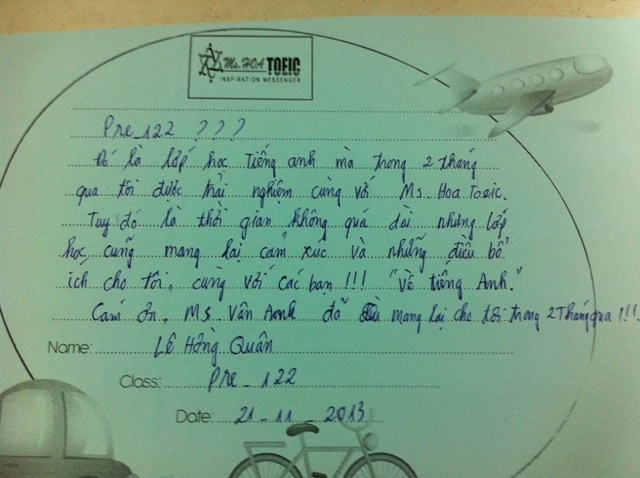 Ms. HOA TOEIC
INSPIRATION MESSENGER
Pre_122 ???
Đó là lớp học Tiếng anh mà trong 2 tháng
qua tôi được trải nghiệm cùng với Ms. Hoa Toeic.
Tuy đó là thời gian không quá dài nhưng lớp
học cũng mang lại cảm xúc và những điều bổ
ích cho tôi, cùng với các bạn !!! "về tiếng Anh."
Cảm ơn, Ms. Vân Anh đã mang lại cho tôi trong 2 Tháng qua !!!
Name: Lê Hồng Quân
Class: Pre_122
Date: 21 - 11 - 2013